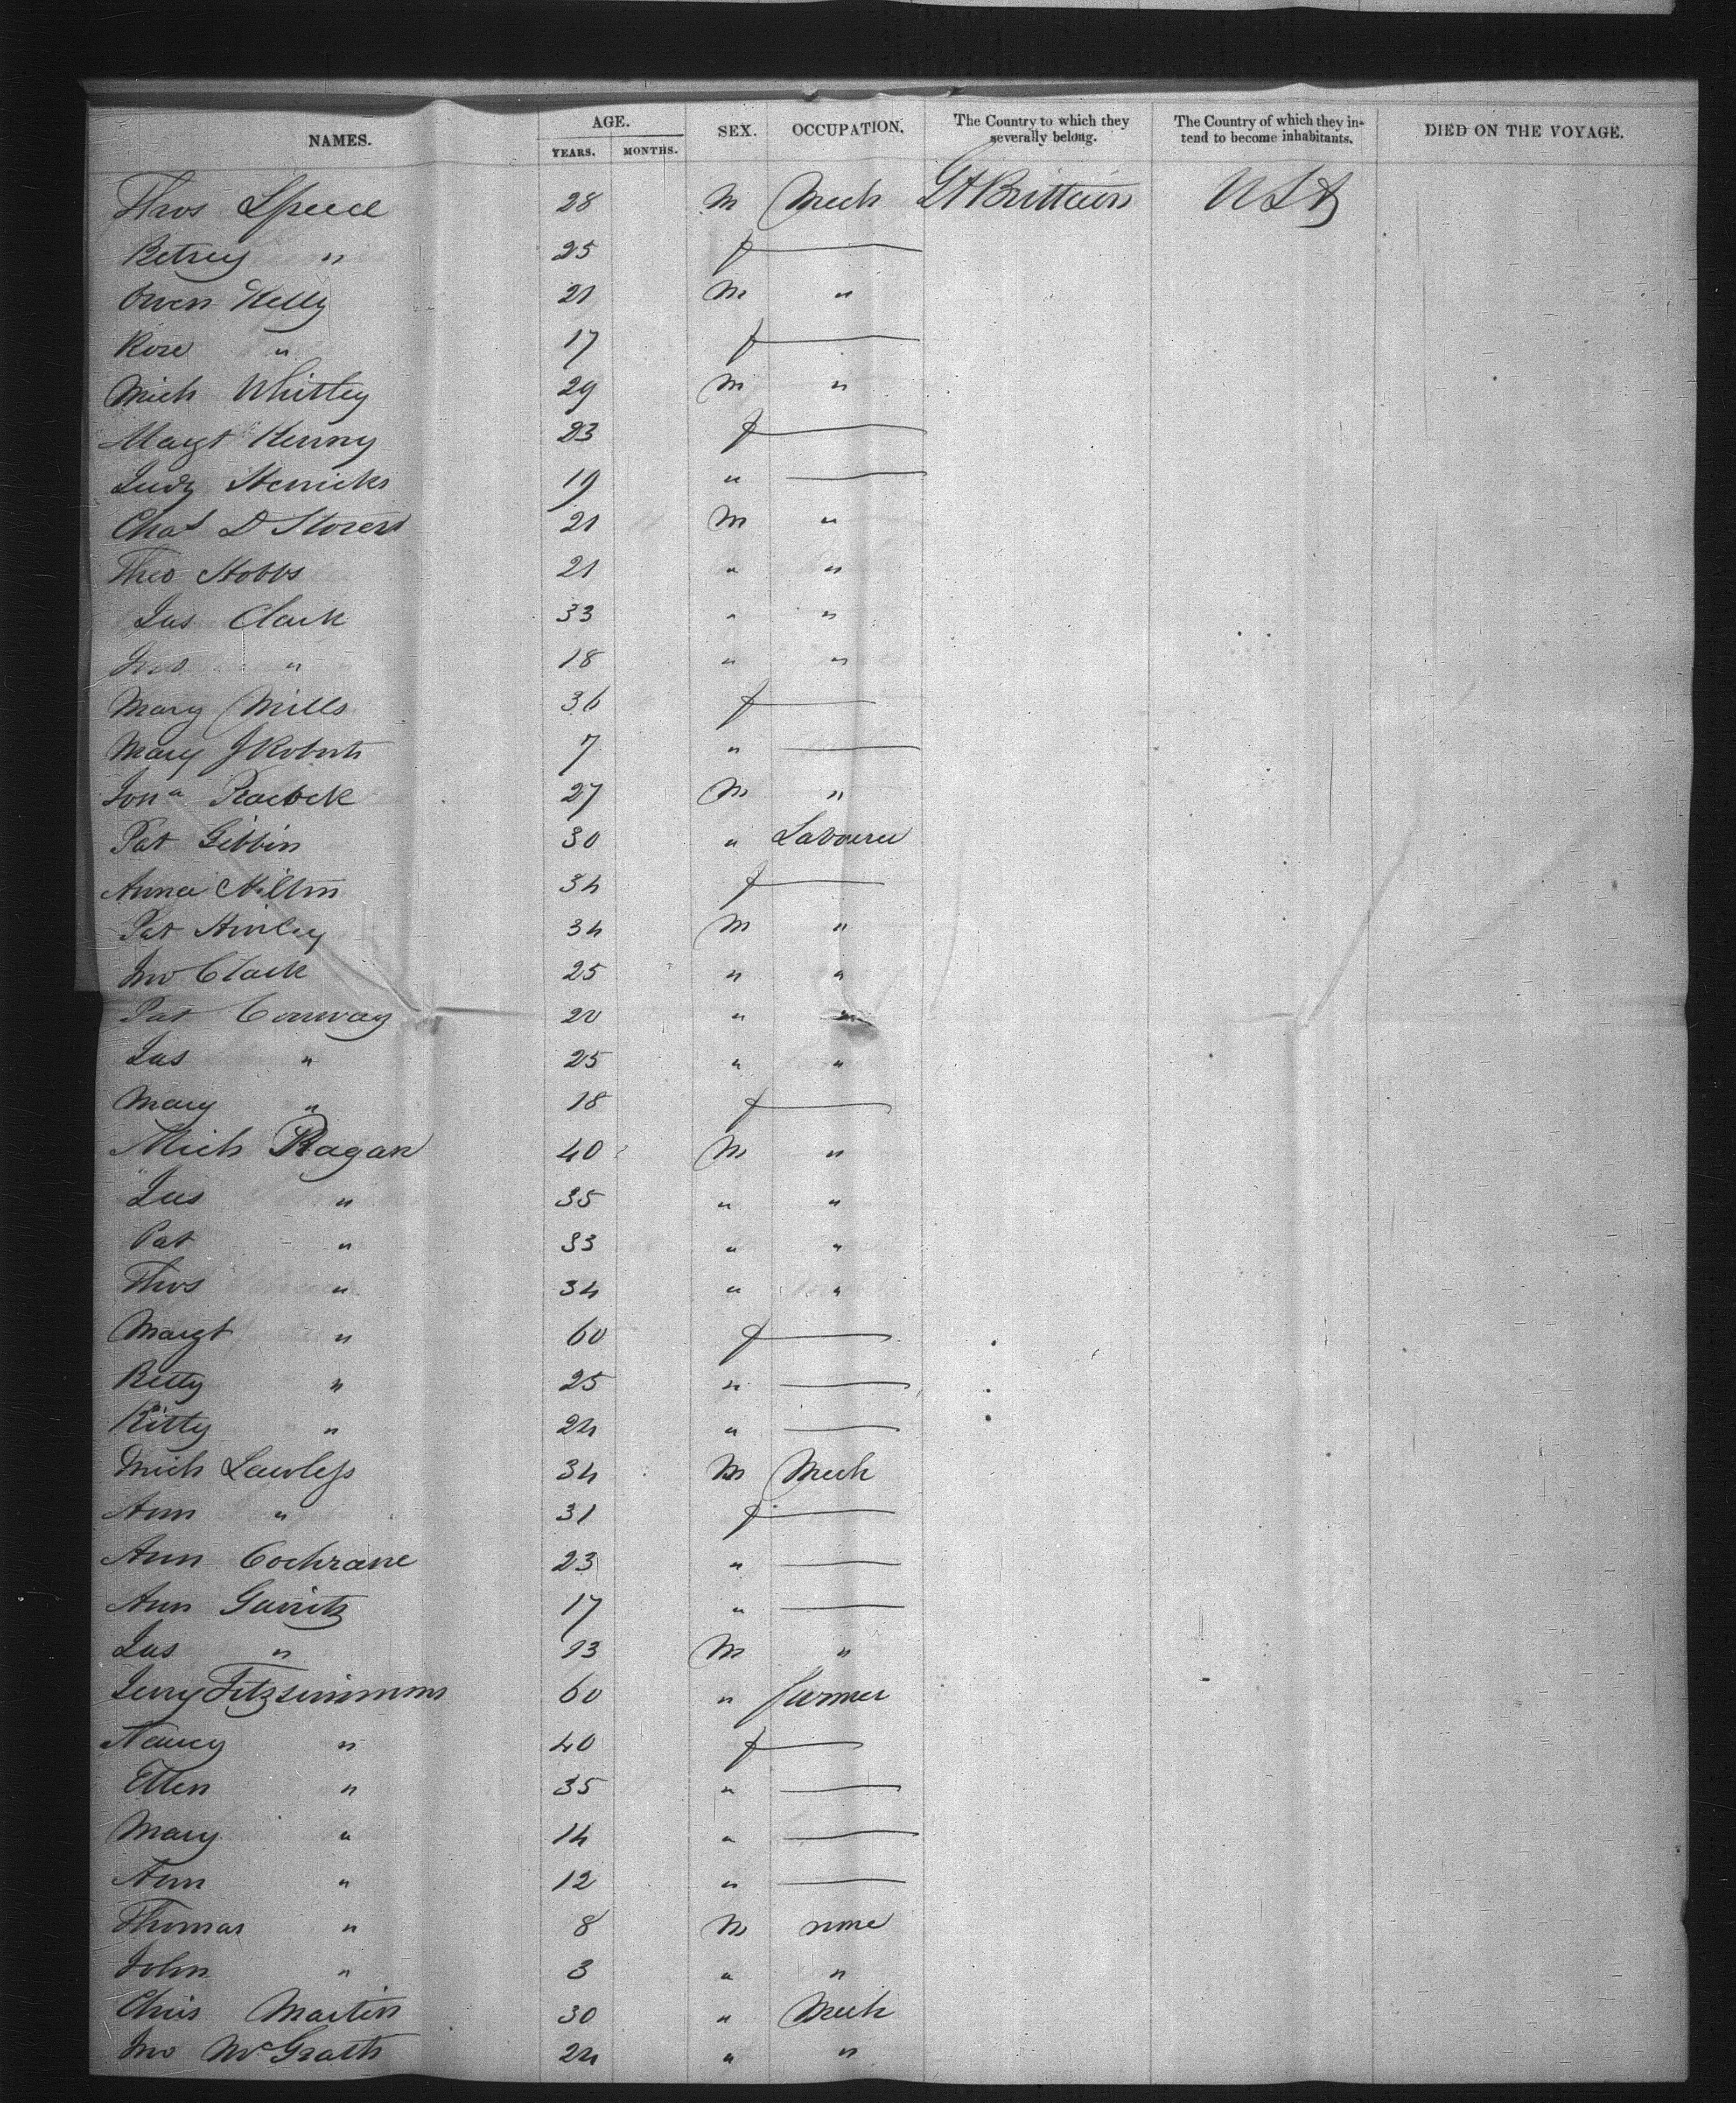 NAMES. AGE. SEX. OCCUPATION. The Country to which they severally belong. The Country of which they intend to become inhabitants. DIED ON THE VOYAGE.
YEARS. MONTHS.
Thos Speed 28 M Mech Gt Brittain U S A
Betsey " 25 f
Owen Kelly 21 M "
Rose " 17 f
Mich Whitley 29 M "
Margt Kenny 23 f
Judy 19 "
Chas D Storers 21 M "
Theo Hobbs 21 " "
Jas Clark 33 " "
Jno " 18 " "
Mary Mills 36 f
Mary J Roberts 7 "
Jona Peacock 27 M "
Pat Gibbin 30 " Labourer
Anna Hilton 34 f
Pat 34 M "
Jno Clark 25 " "
Pat Conway 20 " "
Jas " 25 " "
Mary " 18 f
Mich Ragan 40 M "
Jas " 35 " "
Pat " 33 " "
Thos " 34 " "
Margt " 60 f
Betty " 25 "
Kitty " 24 "
Mich Lawless 34 M Mech
Ann " 31 f
Ann Cochrane 23 "
Ann 17 "
Jas " 13 M "
Jerry Fitzsimmons 60 " farmer
Nancy " 40 f
Ellen " 35 "
Mary " 14 "
Ann " 12 "
Thomas " 8 M none
John " 3 " "
Chris Martin 30 " Mech
Jno McGrath 24 " "